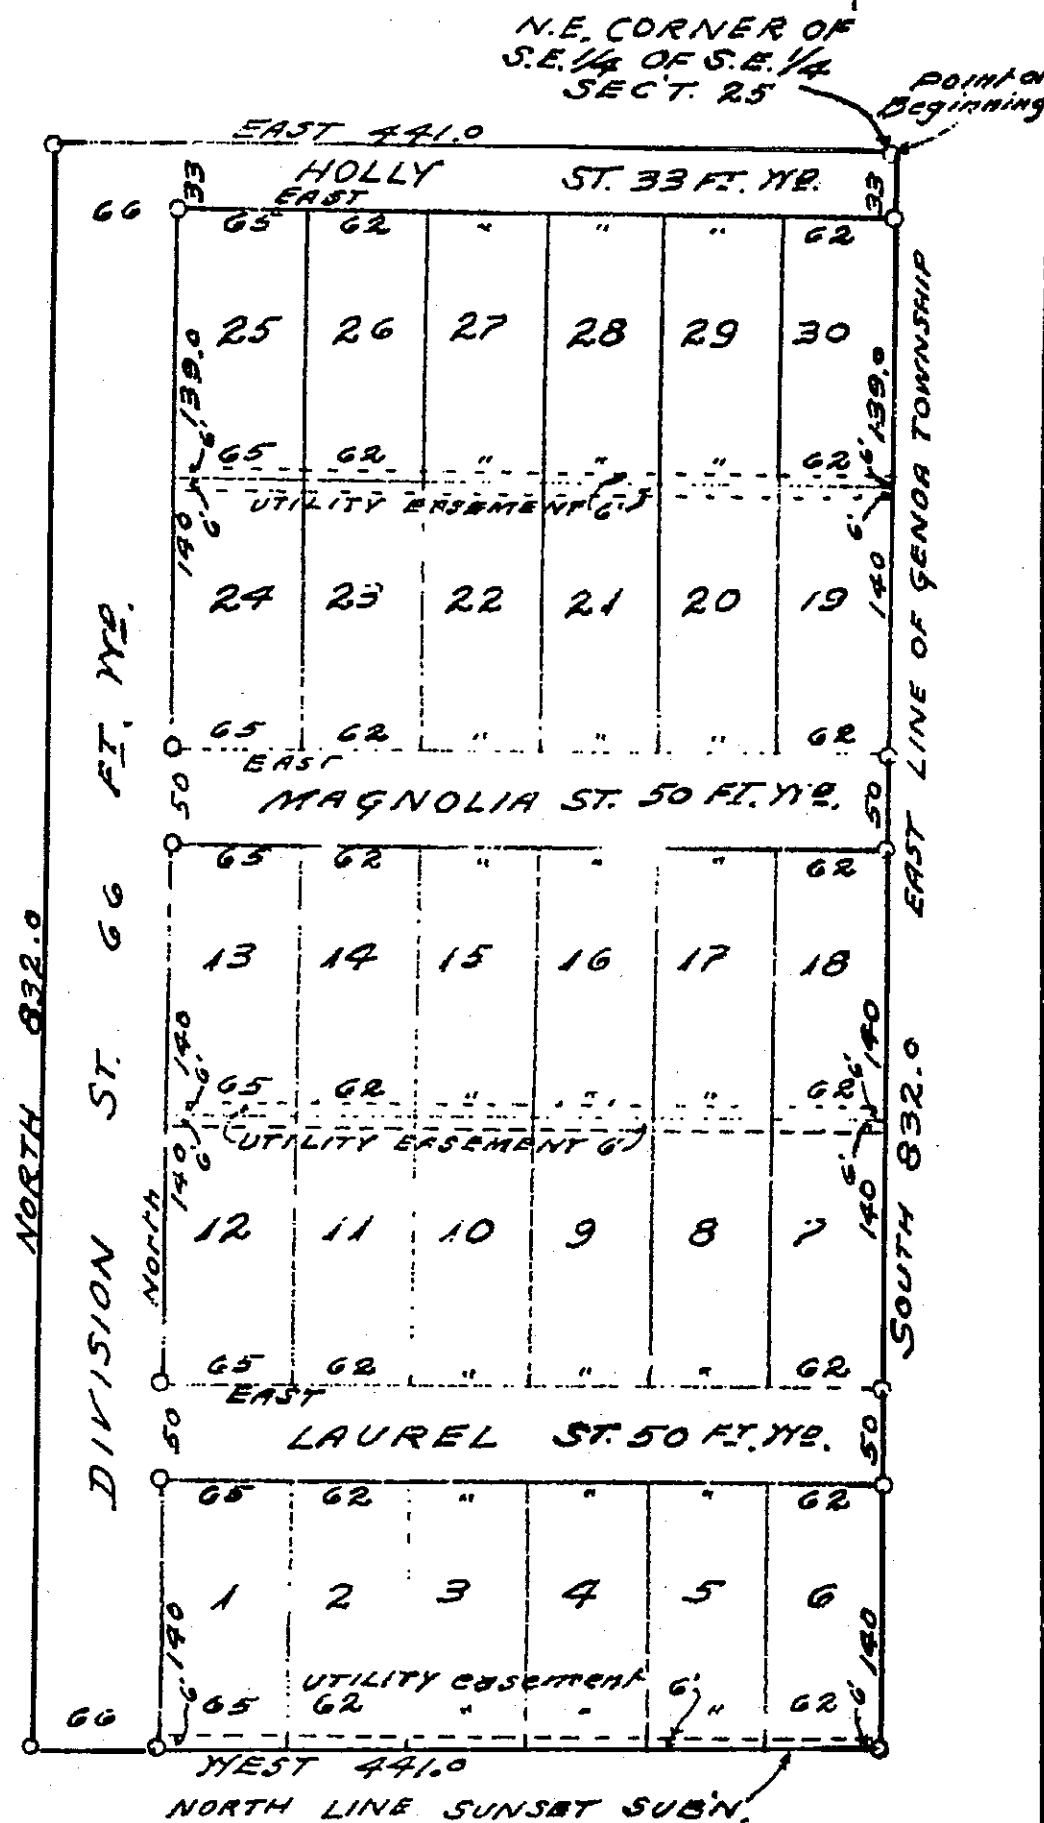 N.E. CORNER OF
S.E. 1/4 OF S.E. 1/4
SEC'T. 25
Point of
Beginning
EAST 441.0
HOLLY ST. 33 FT. WD.
33
33
66
EAST
65 62 " " " 62
25 26 27 28 29 30
139.0
139.0
65 62 " " " 62
6' 6'
UTILITY EASEMENT 6'
6' 6'
140
140
24 23 22 21 20 19
65 62 " " " 62
EAST
50 MAGNOLIA ST. 50 FT. WD. 50
65 62 " " " 62
13 14 15 16 17 18
140
140
65 62 " " " 62
6' 6'
UTILITY EASEMENT 6'
6' 6'
140
140
12 11 10 9 8 7
North
65 62 " " " 62
EAST
50 LAUREL ST. 50 FT. WD. 50
65 62 " " " 62
1 2 3 4 5 6
140
140
UTILITY easement 6'
65 62 " " " 62
6' 6'
66
WEST 441.0
NORTH LINE SUNSET SUB'N.
NORTH 832.0
DIVISION ST. 66 FT. WD.
EAST LINE OF GENOA TOWNSHIP
SOUTH 832.0